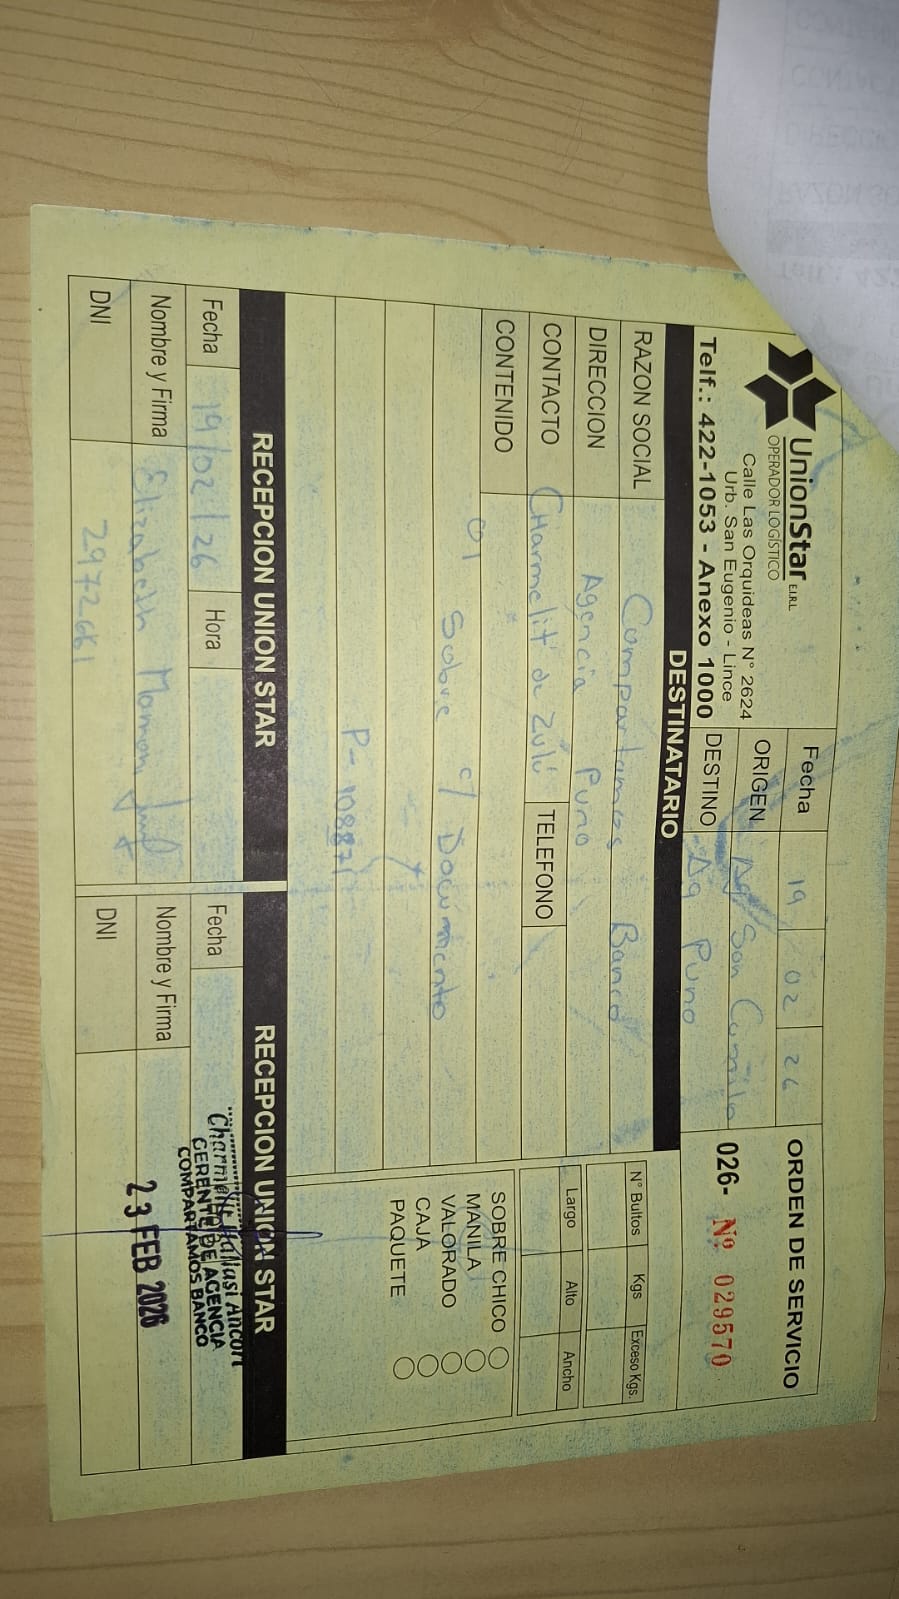 UnionStar E.I.R.L.
OPERADOR LOGÍSTICO
Calle Las Orquideas N° 2624
Urb. San Eugenio - Lince
Telf.: 422-1053 - Anexo 1000
Fecha 19 02 26
ORIGEN Ag San Camilo
DESTINO Ag Puno
ORDEN DE SERVICIO
026- Nº 029570
DESTINATARIO
RAZON SOCIAL Compartamos Banco
DIRECCION Agencia Puno
CONTACTO CHarmelit de Zulú TELEFONO
CONTENIDO
01 Sobre c/ Documento
P-108871
N° Bultos Kgs Exceso Kgs.
Largo Alto Ancho
SOBRE CHICO
MANILA
VALORADO
CAJA
PAQUETE
RECEPCION UNION STAR
Fecha 19/02/26 Hora
Nombre y Firma Elizabeth Mamani
DNI 2972661
RECEPCION UNION STAR
Fecha
Nombre y Firma
DNI
Hallasi Ancori
GERENTE DE AGENCIA
COMPARTAMOS BANCO
23 FEB 2026